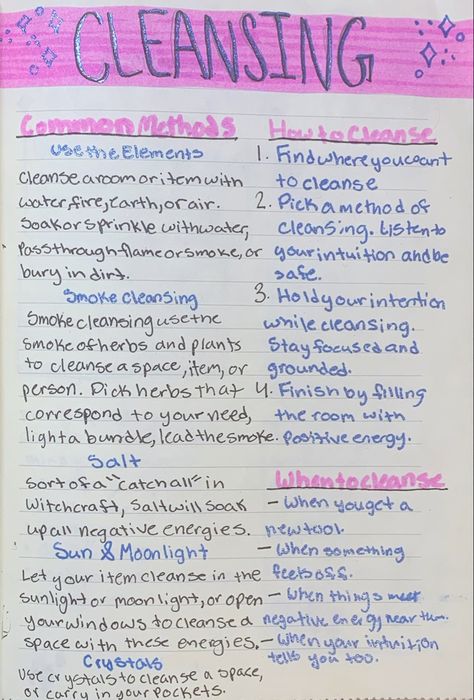 CLEANSING
Common Methods
Use the Elements
Cleanse a room or item with
water, fire, earth, or air.
Soak or sprinkle with water,
pass through flame or smoke, or
bury in dirt.
Smoke Cleansing
Smoke cleansing use the
smoke of herbs and plants
to cleanse a space, item, or
person. Pick herbs that
correspond to your need,
light a bundle, lead the smoke.
Salt
Sort of a "catch all" in
witchcraft, salt will soak
up all negative energies.
Sun & Moonlight
Let your item cleanse in the
sunlight or moonlight, or open
your windows to cleanse a
space with these energies.
Crystals
Use crystals to cleanse a space,
or carry in your pockets.
How to Cleanse
1. Find where you want
to cleanse
2. Pick a method of
cleansing. Listen to
your intuition and be
safe.
3. Hold your intention
while cleansing.
Stay focused and
grounded.
4. Finish by filling
the room with
positive energy.
When to cleanse
- When you get a
new tool.
- When something
feels off.
- When things meet
negative energy near them.
- When your intuition
tells you too.